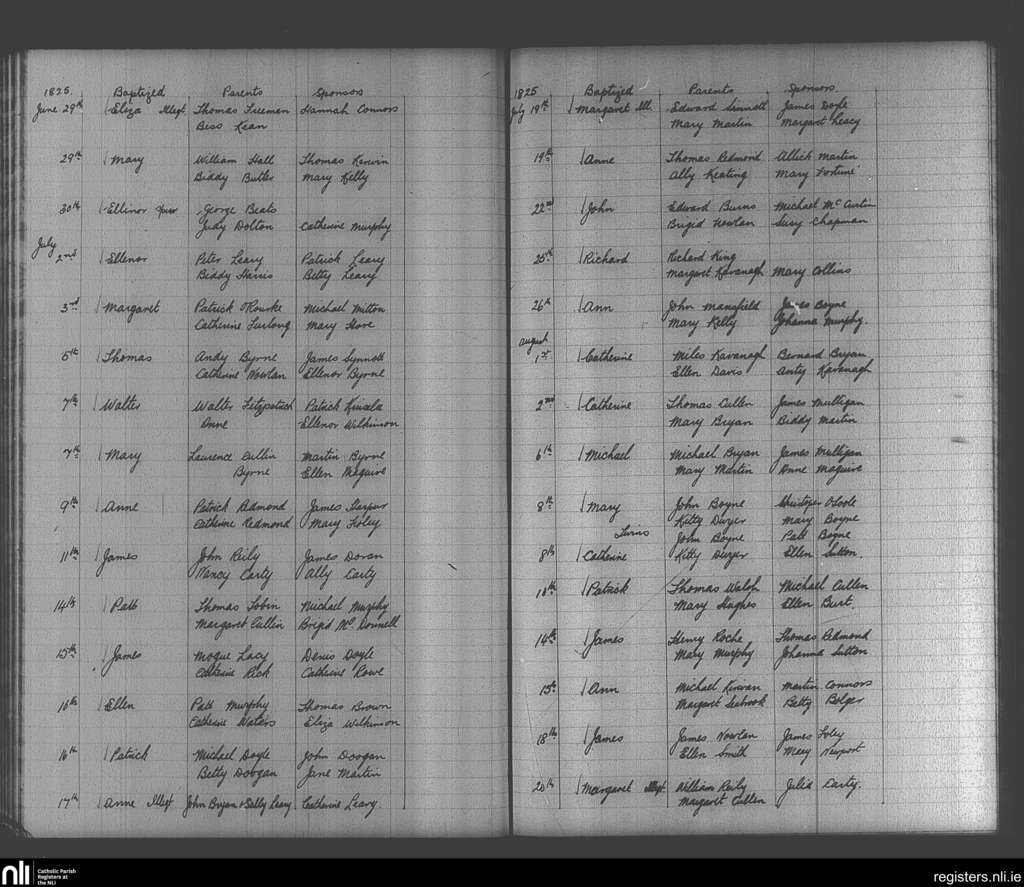 1825. Baptized Parents Sponsors
June 29th Eliza Illegt Thomas Freeman Hannah Connors
Bess Kean
29th Mary William Hall Thomas Kerwin
Biddy Butler Mary Kelly
30th Ellinor George Beats
Judy Dolton Catherine Murphy
July
2nd Ellenor Peter Leary Patrick Leary
Biddy Harris Betty Leary
3rd Margaret Patrick O'Rourke Michael Mitton
Catherine Furlong Mary Hore
5th Thomas Andy Byrne James Synnott
Catherine Nowlan Ellenor Byrne
7th Walter Walter Fitzpatrick Patrick Kinsela
Anne Ellenor Wilkinson
7th Mary Laurence Cullin Martin Byrne
Byrne Ellen Maguire
9th Anne Patrick Redmond James Harper
Catherine Redmond Mary Foley
11th James John Reily James Doran
Nancy Carty Ally Carty
14th Patt Thomas Tobin Michael Murphy
Margaret Cullin Brigid McDonnell
15th James Mogue Lacy Denis Doyle
Catherine Rick Catherine Rowe
16th Ellen Patt Murphy Thomas Brown
Catherine Waters Eliza Wilkinson
16th Patrick Michael Doyle John Doogan
Betty Doogan Jane Martin
17th Anne Illegt John Bryan & Sally Leary Catherine Leary.
1825 Baptized Parents Sponsors.
July 19th Margaret Ill. Edward Sinnott James Doyle
Mary Martin Margaret Leacy
19th Anne Thomas Redmond Allick Martin
Ally Keating Mary Fortune
22nd John Edward Burns Michael McCurtin
Brigid Nowlan Susy Chapman
25th Richard Richard King
Margaret Kavanagh Mary Collins
26th Ann John Mansfield James Boyne
Mary Kelly Johanna Murphy.
August
1st Catherine Miles Kavanagh Bernard Bryan
Ellen Davis Anty Kavanagh
2nd Catherine Thomas Cullen James Mulligan
Mary Bryan Biddy Martin
6th Michael Michael Bryan James Mulligan
Mary Martin Anne Maguire
8th Mary John Boyne Christoper O'Toole
Kitty Dwyer Mary Boyne
Twins John Boyne Patt Boyne
8th Catherine Kitty Dwyer Ellen Sutton.
10th Patrick Thomas Walsh Michael Cullen
Mary Hughes Ellen Burt.
14th James Henry Roche Thomas Redmond
Mary Murphy Johanna Sutton
15th Ann Michael Kirwan Martin Connors
Margaret Seabrook Betty Bolger
18th James James Nowlan James Foley
Ellen Smith Mary Newport
20th Margaret Illegt. William Reily Julia Carty.
Margaret Cullen
nli Catholic Parish
Registers at
the NLI
registers.nli.ie